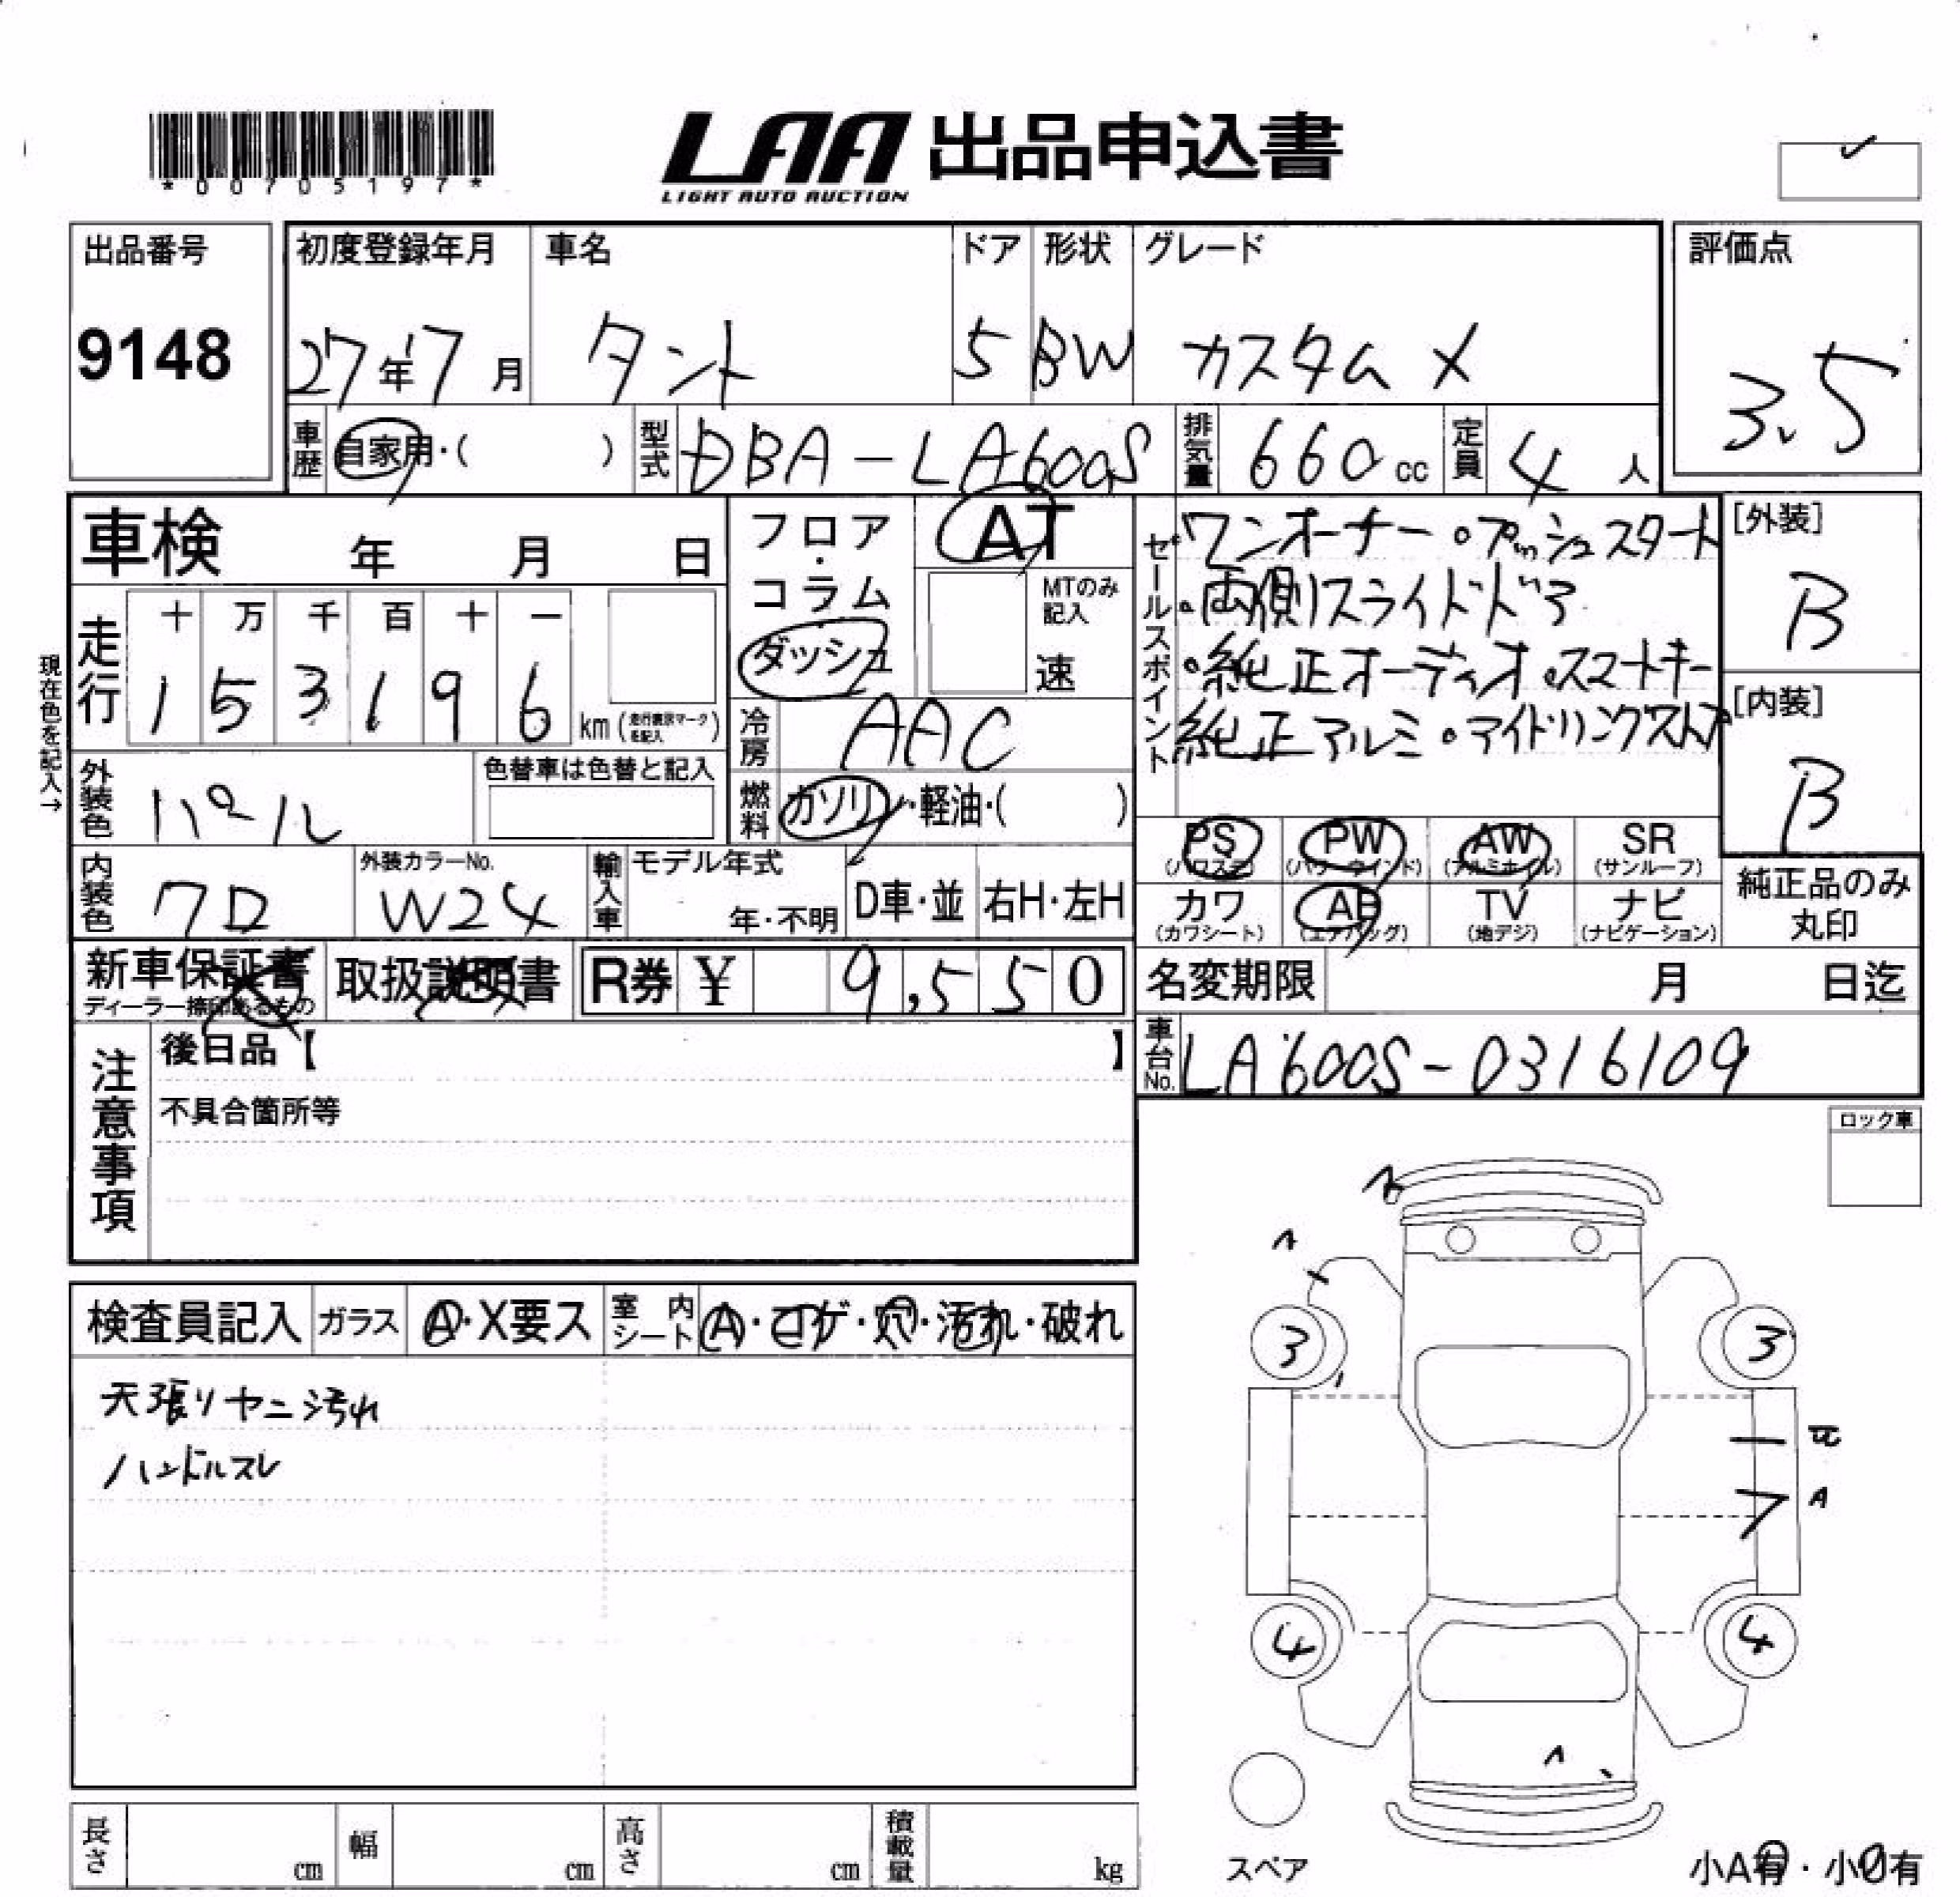 *00705197*
LAA 出品申込書
LIGHT AUTO AUCTION
出品番号
9148
初度登録年月
27年7月
車名
タント
ドア
5
形状
BW
グレード
カスタムX
評価点
3.5
車歴
自家用・( )
型式
DBA-LA600S
排気量
660cc
定員
4人
車検 年 月 日
フロア・コラム
ダッシュ
AT
MTのみ記入
速
セールスポイント
ワンオーナー・プッシュスタート
・両側スライドドア
・純正オーディオ・スマートキー
純正アルミ・アイドリングストップ
[外装]
B
[内装]
B
現在色を記入→
走行
十 万 千 百 十 一
1 5 3 1 9 6
km(走行表示マークを記入)
冷房
AAC
外装色
パール
色替車は色替と記入
燃料
ガソリン・軽油・( )
PS
(パワステ)
PW
(パワーウインド)
AW
(アルミホイル)
SR
(サンルーフ)
カワ
(カワシート)
AB
(エアバッグ)
TV
(地デジ)
ナビ
(ナビゲーション)
純正品のみ
丸印
内装色
外装カラーNo.
W24
輸入車
モデル年式
年・不明
D車・並
右H・左H
新車保証書
ディーラー捺印あるもの
取扱説明書
R券 ¥ 9,550
名変期限 月 日迄
車台No.
LA600S-0316109
注意事項
後日品【 】
不具合箇所等
ロック車
検査員記入
ガラス
A・X要ス
室内シート
A・コゲ・穴・汚れ・破れ
天張りヤニ汚れ
ハンドルスレ
3 3
A
4 4
スペア
小A有・小U有
長さ cm
幅 cm
高さ cm
積載量 kg